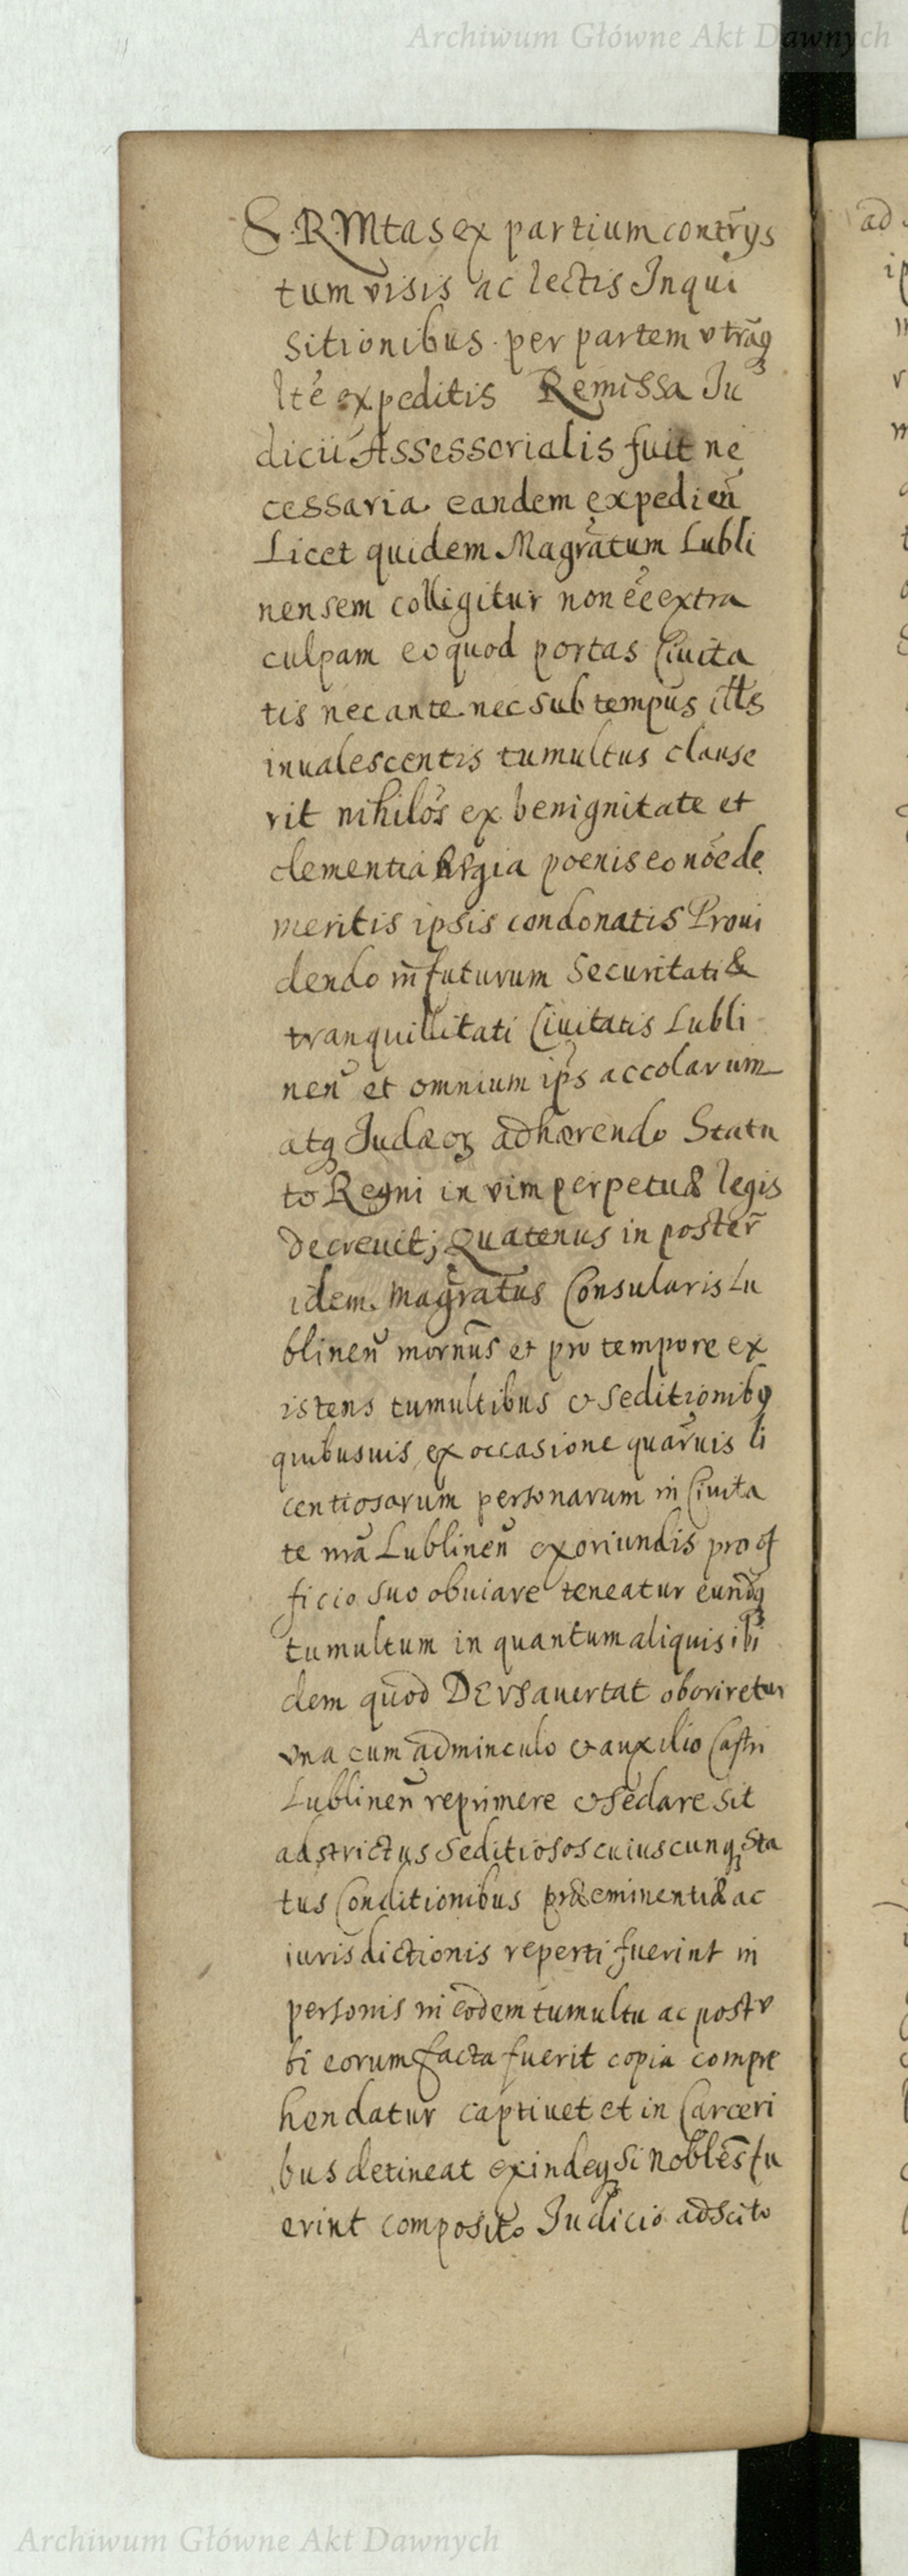 Archiwum Główne Akt Dawnych
S. R. Mtas ex partium contrỹs
tum visis ac lectis Inqui
sitionibus per partem vtrãq
lté expeditis Remissa Ju
dicii Assessorialis fuit ne
cessaria eandem expedieñ
Licet quidem Magr̃atum Lubli
nensem colligitur non ée extra
culpam eo quod portas Ciuita
tis nec ante nec sub tempus ills
inualescentis tumultus clause
rit nihilo᷒s ex benignitate et
clementia Regia poenis eo nõe de
meritis ipsis condonatis Proui
dendo in futurum Securitati &
tranquillitati Ciuitatis Lubli
neñ et omnium ip̃s accolarum
atq Judæoꝝ adhærendo Statu
to Regni in vim perpetuæ legis
decreuit; Quatenus in poster̃
idem Magr̃atus Consularis Lu
blineñ mornũs et pro tempore ex
istens tumultibus & seditionibq
quibusuis ex occasione quar̃uis li
centiosarum personarum in Ciuita
te nr̃a Lublineñ exoriundis pro of
ficio suo obuiare teneatur eundq
tumultum in quantum aliquis ibi
dem quod DEVS auertat oboriretur
vna cum adminculo & auxilio Castri
Lublineñ reprimere & sedare sit
adstrictus Seditiosos cuiuscunq Sta
tus Conditionibus præeminentiæ ac
iurisdictionis reperti fuerint in
personis in eodem tumultu ac post v
bi eorum facta fuerit copia compre
hendatur captiuet et in Carceri
bus detineat exindeq si nobles̃ fu
erint composito Judicio adscito
ad
Archiwum Główne Akt Dawnych